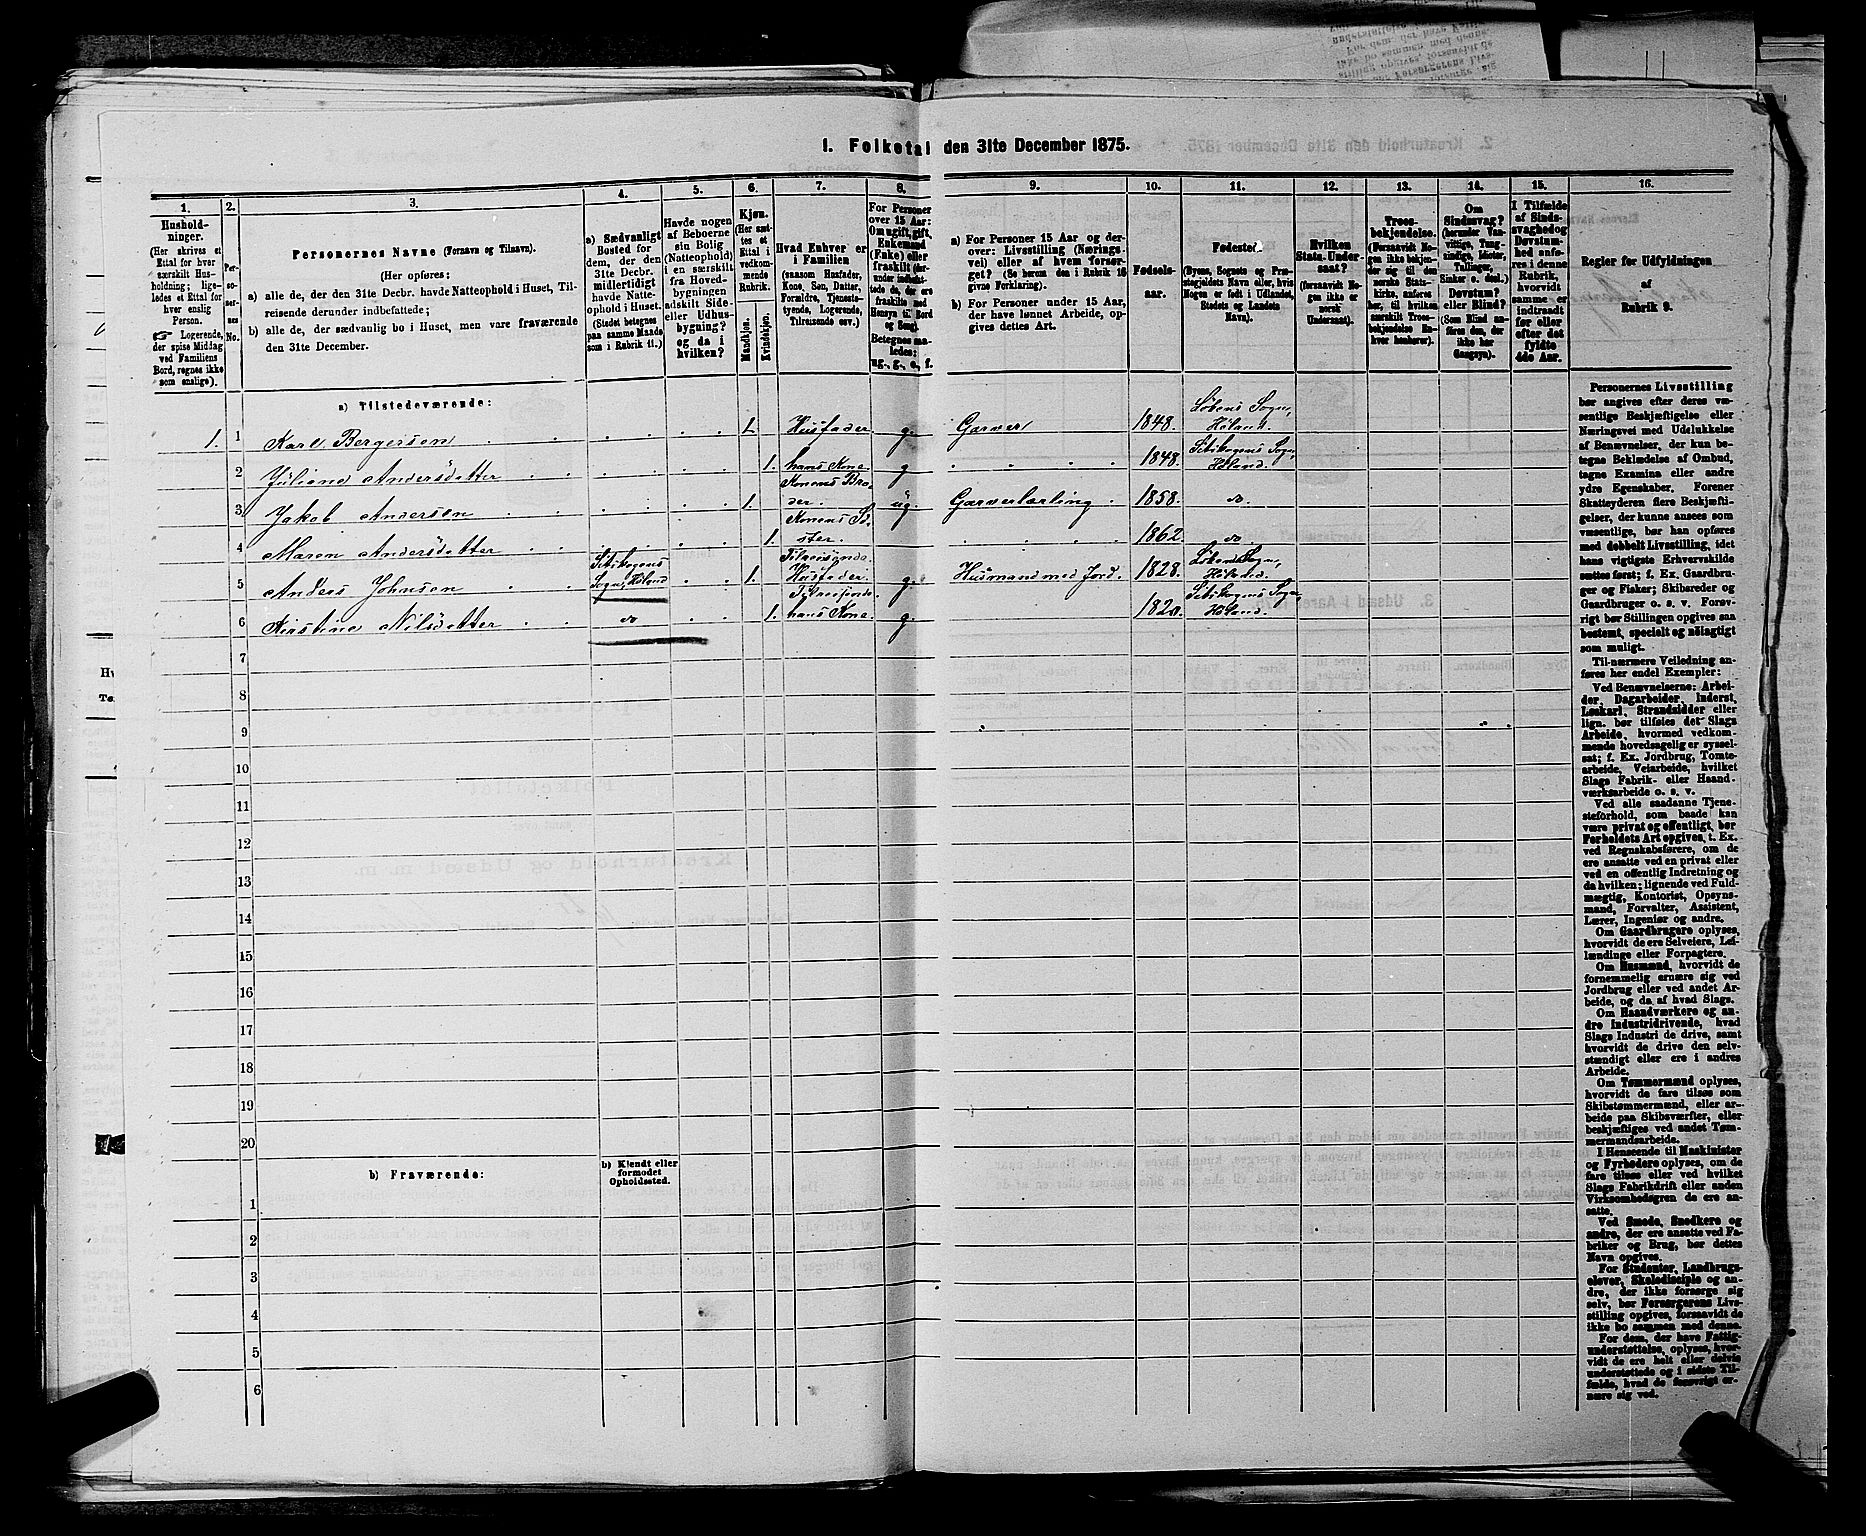 1. Folketal den 31te December 1875.
1.
2.
3.
4.
5.
6.
7.
8.
9.
10.
11.
12.
13.
14.
15.
16.
Hushold-
ninger.
(Her skrives et
Ettal for hver
særskilt Hus-
holdning; lige-
ledes et Ettal for
hver enslig
Person.
Logerende,
der spise Middag
ved Familiens
Bord, regnes ikke
som enslige).
Per-
so-
ner-
nes
No.
Personernes Navne (Fornavn og Tilnavn).
(Her opføres:
a) alle de, der den 31te Decbr. havde Natteophold i Huset, Til-
reisende derunder indbefattede;
b) alle de, der sædvanlig bo i Huset, men vare fraværende
den 31te December.
a) Sædvanligt
Bosted for
dem, der den
31te Decbr.
midlertidigt
havde Natte-
ophold i Huset.
(Stedet betegnes
paa samme Maade
som i Rubrik 11.)
Havde nogen
af Beboerne
sin Bolig
(Natteophold)
i en særskilt
fra Hoved-
bygningen
adskilt Side-
eller Udhus-
bygning?
og da i
hvilken?
Kjøn.
(Her sæt-
tes et
Ettal i
vedkom-
mende
Rubrik.
Mandkjøn.
Kvindekjøn.
Hvad Enhver er
i Familien
(saasom Husfader,
Kone, Søn, Datter,
Forældre, Tjeneste-
tyende, Logerende,
Tilreisende osv.)
For Personer
over 15 Aar:
Om ugift, gift,
Enkemand
(Enke) eller
fraskilt
Betegnes saa-
ledes:
ug., g., e., f.
a) For Personer 15 Aar og der-
over: Livsstilling (Nærings-
vei) eller af hvem forsør-
get? (Se herom den i Rubrik 16
givne Forklaring).
b) For Personer under 15 Aar,
der have lønnet Arbeide, op-
gives dettes Art.
Fødsels-
aar.
Fødested.
(Byens, Sognets og Præ-
stegjeldets Navn eller, hvis
Nogen er født i Udlandet,
Stedets og Landets
Navn).
Hvilken
Stats Under-
saat?
(forsaavidt No-
gen ikke er
norsk
Undersaat).
Troes-
bekjendelse.
(Forsaavidt No-
gen ikke bekjen-
der sig til den
norske Stats-
kirke, anføres
her, til hvilken
særskilt Troes-
bekjendelse En-
hver henhører).
Om
Sindssvag?
(herunder Van-
vittige, Tung-
sindige, Idioter,
Tullinger,
Sinker o. desl.)
Døvstum?
eller Blind?
(Som Blind an-
føres den, der
ikke har
Gangsyn).
I Tilfælde
af Sinds-
svaghed og
Døvstum-
hed anfø-
res i denne
Rubrik,
hvorvidt
samme er
indtraadt
før eller
efter det
fyldte
4de Aar.
Regler for Udfyldningen
af
Rubrik 9.
a) Tilstedeværende:
1. 1 Karl Bergersen 1. Husfader g. Garver 1848. Løkens Sogn, Høland.
2 Juliane Andersdatter 1. hans Kone g 1848. Setskogens Sogn, Høland.
3 Jakob Andersen 1. Konens Bro-
der. ug. Garverlærling 1858. do
4 Maren Andersdatter 1. Konens Sø-
ster. 1862. do
5 Anders Johnsen Setskogens
Sogn, Høland 1. Tilreisende
Husfader. g. Husmand med Jord. 1828. Løkens Sogn, Høland.
6 Kirstine Nilsdatter do 1. Tilreisende
hans Kone g. 1820. Setskogens Sogn, Høland.
7
8
9
10
11
12
13
14
15
16
17
18
19
20
b) Fraværende:
b) Kjendt eller
formodet
Opholdssted.
1
2
3
4
5
6
Personernes Livsstilling
bør angives efter deres væ-
sentlige Beskjæftigelse eller
Næringsvei med Udelukkelse
af Benævnelser, der kun be-
tegne Beklædelse af Ombud,
tagne Examina eller andre
ydre Egenskaber. Forener
Skatteyderen flere Beskjæfti-
gelser, der kunne ansees som
væsentlige, bør han opføres
med dobbelt Livsstilling, idet
hans vigtigste Erhvervskilde
sættes først; f. Ex. Gaardbru-
ger og Fisker; Skibsreder og
Gaardbruger o. s. v. Forøv-
rigt bør Stillingen opgives saa
bestemt, specielt og nøiagtigt
som muligt.
Til nærmere Veiledning an-
føres her endel Exempler:
Ved Benævnelserne: Arbei-
der, Dagarbeider, Inderst,
Løskarl, Strandsidder eller
lign. bør tilføies det Slags
Arbeide, hvormed vedkom-
mende hovedsagelig er syssel-
sat; f. Ex. Jordbrug, Tomte-
arbeide, Veiarbeide, hvilket
Slags Fabrik- eller Haand-
værksarbeide o. s. v.
Ved alle saadanne Tjene-
steforhold, som baade kan
være privat og offentligt, bør
Forholdets Art opgives, t. Ex.
ved Regnskabsførere, om de
ere ansatte ved en privat eller
ved en offentlig Indretning og
da hvilken; lignende ved Fuld-
mægtig, Kontorist, Opsyns-
mand, Forvalter, Assistent,
Lærer, Ingeniør og andre.
Om Gaardbrugere oplyses,
hvorvidt de ere Selveiere, Lei-
lændinge eller Forpagtere.
Om Husmænd, hvorvidt de
fornemmelig ernære sig ved
Jordbrug eller ved andet Ar-
beide, og da af hvad Slags.
Om Haandværkere og an-
dre Industridrivende, hvad
Slags Industri de drive, samt
hvorvidt de drive den selv-
stændigt eller ere i andres
Arbeide.
Om Tømmermænd oplyses,
hvorvidt de fare tilsøs som
Skibstømmermænd, eller ar-
beide paa Skibsværfter, eller
beskjæftiges ved andet Tøm-
mermandsarbeide.
I Henseende til Maskinister
og Fyrbødere oplyses, om de
fare tilsøs eller ved hvilket
Slags Fabrikdrift eller anden
Virksomhedsgren de ere an-
satte.
Ved Smede, Snedkere og
andre, der ere ansatte ved Fa-
briker og Brug, bør dettes
Navn opgives.
For Studenter, Landbrugs-
elever, Skoledisciple og an-
dre, der ikke forsørge sig
selv, bør Forsørgerens Livs-
stilling opgives, forsaavidt de
ikke bo sammen med denne.
For dem, der have Fattig-
understøttelse, oplyses, hvor-
vidt de ere helt eller delvis
understøttede og i sidste Til-
fælde, hvad de forøvrigt er-
nære sig ved.